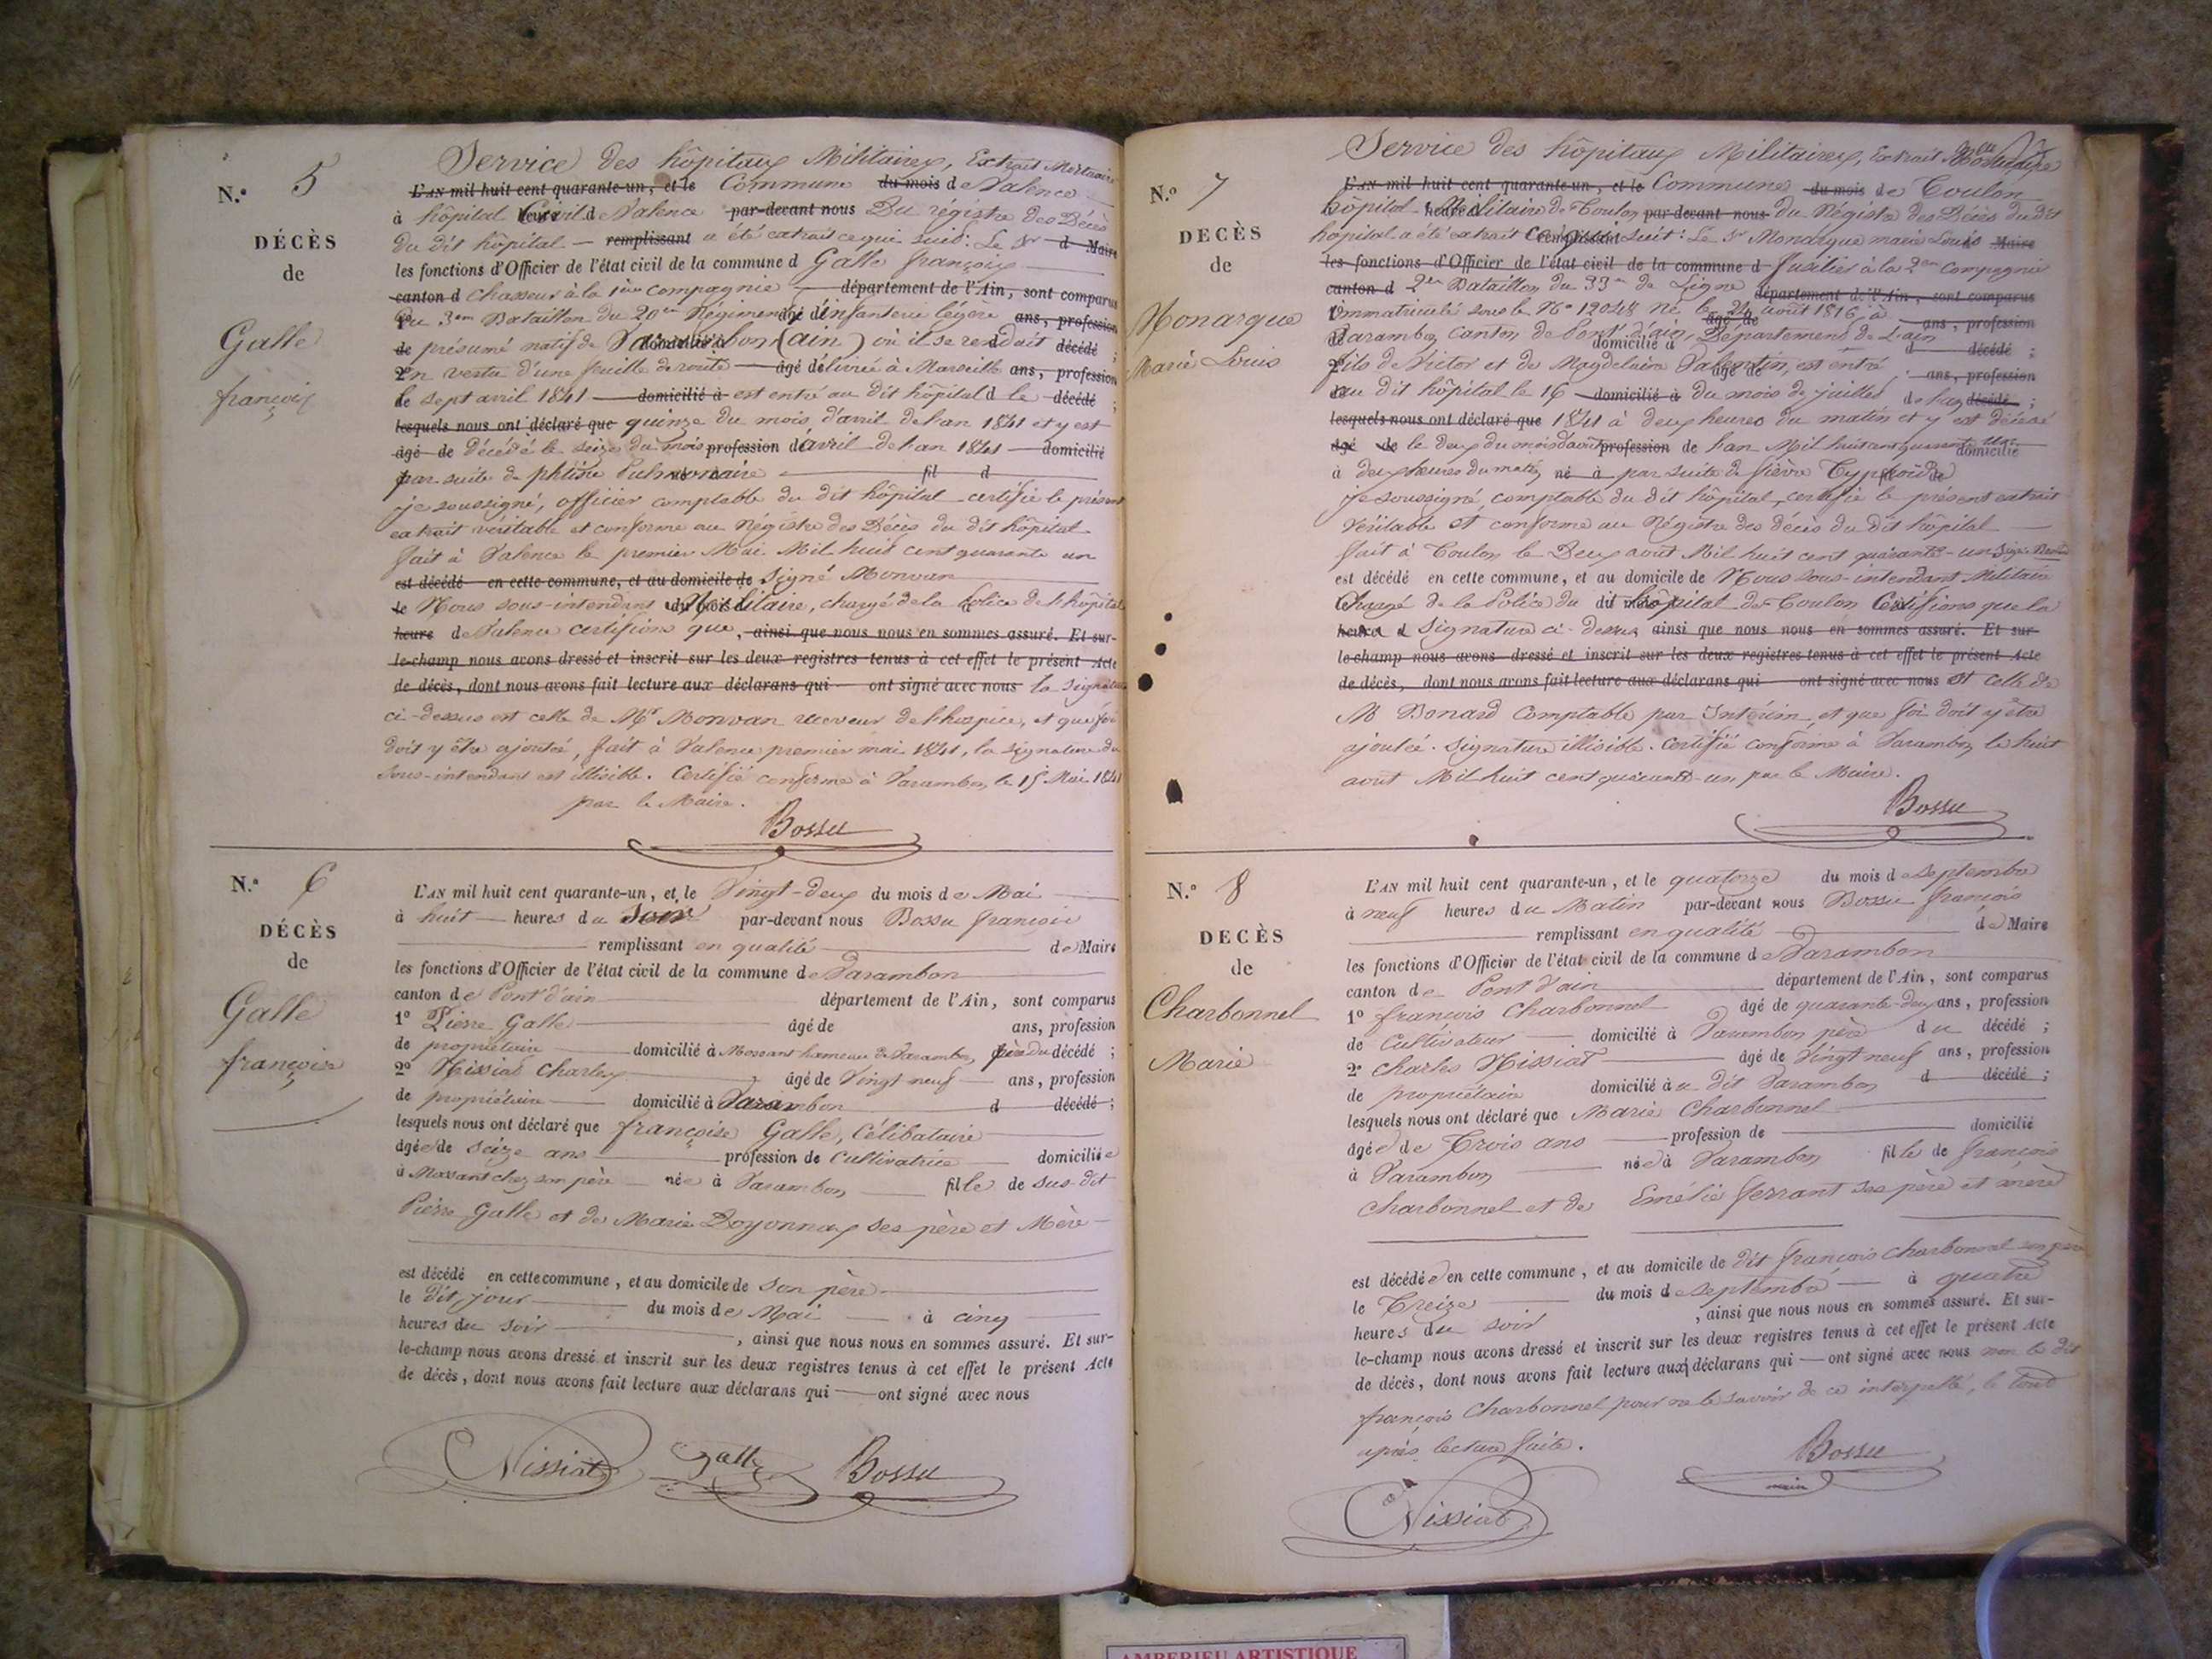 N.o 5
DÉCÈS
de
Galle
françois
Service des hôpitaux Militaires, Extrait Mortuaire
L'AN mil huit cent quarante-un, et le Commune du mois de Valence
à hôpital Civil de Valence par-devant nous Du régistre des Décès
du dit hôpital — remplissant a été extrait ce qui suit: Le Sr d Maire
les fonctions d'Officier de l'état civil de la commune d Galle françois
canton d chasseur à la 1ère compagnie département de l'Ain, sont comparus
1o Du 3em Bataillon du 20em Régiment d'infanterie légère ans, profession
de présumé natif de Varambon (ain) où il se rendait décédé ;
2o En vertu d'une feuille de route âgé délivrée à Marseille ans, profession
de sept avril 1841 — domicilié à est entré au dit hôpital d le décédé ;
lesquels nous ont déclaré que quinze du mois d'avril de l'an 1841 et y est
âgé de Décédé le seize du mois profession d'avril de l'an 1841 — domicilié
par suite de phtisie Pulmonaire fil d
je soussigné, officier comptable du dit hôpital certifie le présent
extrait véritable et conforme au Régistre des Décès du dit hôpital
fait à Valence le premier Mai Mil huit cent quarante un
est décédé en cette commune, et au domicile de Signé Monvan
le Nous sous-intendant du mois Militaire, chargé de la Police de l'hôpital
heure de Valence certifions que, ainsi que nous nous en sommes assuré. Et sur-
le-champ nous avons dressé et inscrit sur les deux registres tenus à cet effet le présent Acte
de décès, dont nous avons fait lecture aux déclarans qui ont signé avec nous la signature
ci-dessus est celle de Mr Monvan receveur de l'hospice, et que foi
doit y être ajoutée, fait à Valence premier mai 1841, la signature du
sous-intendant est illisible. Certifié conforme à Varambon, le 15 Mai 1841
par le Maire.
Bossu
N.o 6
DÉCÈS
de
Galle
françoise
L'AN mil huit cent quarante-un, et le Vingt-deux du mois de Mai
à huit heures du Soir par-devant nous Bossu françois
remplissant en qualité de Maire
les fonctions d'Officier de l'état civil de la commune de Varambon
canton de Pont d'ain département de l'Ain, sont comparus
1o Pierre Galle âgé de ans, profession
de propriétaire domicilié à Mossant hameau de Varambon père du décédé ;
2o Nissiat Charles âgé de Vingt neuf ans, profession
de propriétaire domicilié à Varambon d décédé ;
lesquels nous ont déclaré que françoise Galle, Célibataire
âgée de seize ans profession de Cultivatrice domiciliée
à Mossant chez son père née à Varambon fille de sus-dit
Pierre Galle et de Marie Doyonnax ses père et Mère
est décédé en cette commune, et au domicile de son père
le dit jour du mois de Mai à cinq
heures du soir , ainsi que nous nous en sommes assuré. Et sur-
le-champ nous avons dressé et inscrit sur les deux registres tenus à cet effet le présent Acte
de décès, dont nous avons fait lecture aux déclarans qui — ont signé avec nous
Nissiat Galle Bossu
N.o 7
DECÈS
de
Monarque
Marie Louis
Service des hôpitaux Militaires, Extrait Mortuaire
L'AN mil huit cent quarante-un, et le Commune du mois de Toulon
hôpital Militaire de Toulon par-devant nous du Régistre des Décès du dit
hôpital a été extrait ce qui suit: Le Sr Monarque marie Louis Maire
les fonctions d'Officier de l'état civil de la commune d fusilier à la 2em compagnie
canton d 2em Bataillon du 33em de Ligne département de l'Ain, sont comparus
1o immatriculé sous le No 12048 né le 24 août 1816, à ans, profession
de Varambon canton de Pont d'ain, Département de L'ain domicilié à d décédé ;
2o fils de Victor et de Magdelaine Valentin, est entré âgé de ans, profession
de au dit hôpital le 16 domicilié à du mois de juillet de l'an décédé ;
lesquels nous ont déclaré que 1841 à deux heures du matin et y est décédé
âgé de le deux du mois d'août profession de l'an Mil huit cent quarante un domicilié
à deux heures du matin né à par suite de fièvre Typhoïde
je soussigné, comptable du dit hôpital, certifie le présent extrait
véritable et conforme au Régistre des décès du dit hôpital
fait à Toulon le Deux août Mil huit cent quarante-un Signé Bonard
est décédé en cette commune, et au domicile de Nous sous-intendant Militaire
chargé de la Police du dit hôpital de Toulon Certifions que la
heure d signature ci-dessus ainsi que nous nous en sommes assuré. Et sur-
le-champ nous avons dressé et inscrit sur les deux registres tenus à cet effet le présent Acte
de décès, dont nous avons fait lecture aux déclarans qui ont signé avec nous est celle de
M Bonard Comptable par Intérim, et que foi doit y être
ajoutée. Signature illisible. Certifié conforme à Varambon, le huit
août Mil huit cent quarante-un, par le Maire.
Bossu
N.o 8
DECÈS
de
Charbonnel
Marie
L'AN mil huit cent quarante-un, et le quatorze du mois de Septembre
à neuf heures du Matin par-devant nous Bossu françois
remplissant en qualité de Maire
les fonctions d'Officier de l'état civil de la commune de Varambon
canton de Pont d'ain département de l'Ain, sont comparus
1o françois Charbonnel âgé de quarante-deux ans, profession
de Cultivateur domicilié à Varambon père du décédé ;
2o Charles Nissiat âgé de Vingt neuf ans, profession
de propriétaire domicilié à u dit Varambon d décédé ;
lesquels nous ont déclaré que Marie Charbonnel
âgée de Trois ans profession de domicilié
à Varambon née à Varambon fille de françois
Charbonnel et de Emélie ferrant ses père et mère
est décédée en cette commune, et au domicile de dit françois Charbonnel son père
le Treize du mois de septembre à quatre
heures du soir , ainsi que nous nous en sommes assuré. Et sur-
le-champ nous avons dressé et inscrit sur les deux registres tenus à cet effet le présent Acte
de décès, dont nous avons fait lecture aux déclarans qui — ont signé avec nous non le dit
françois Charbonnel pour ne le savoir de ce interpellé, le tout
après lecture faite.
Bossu
maire
Nissiat
AMBERIEU ARTISTIQUE